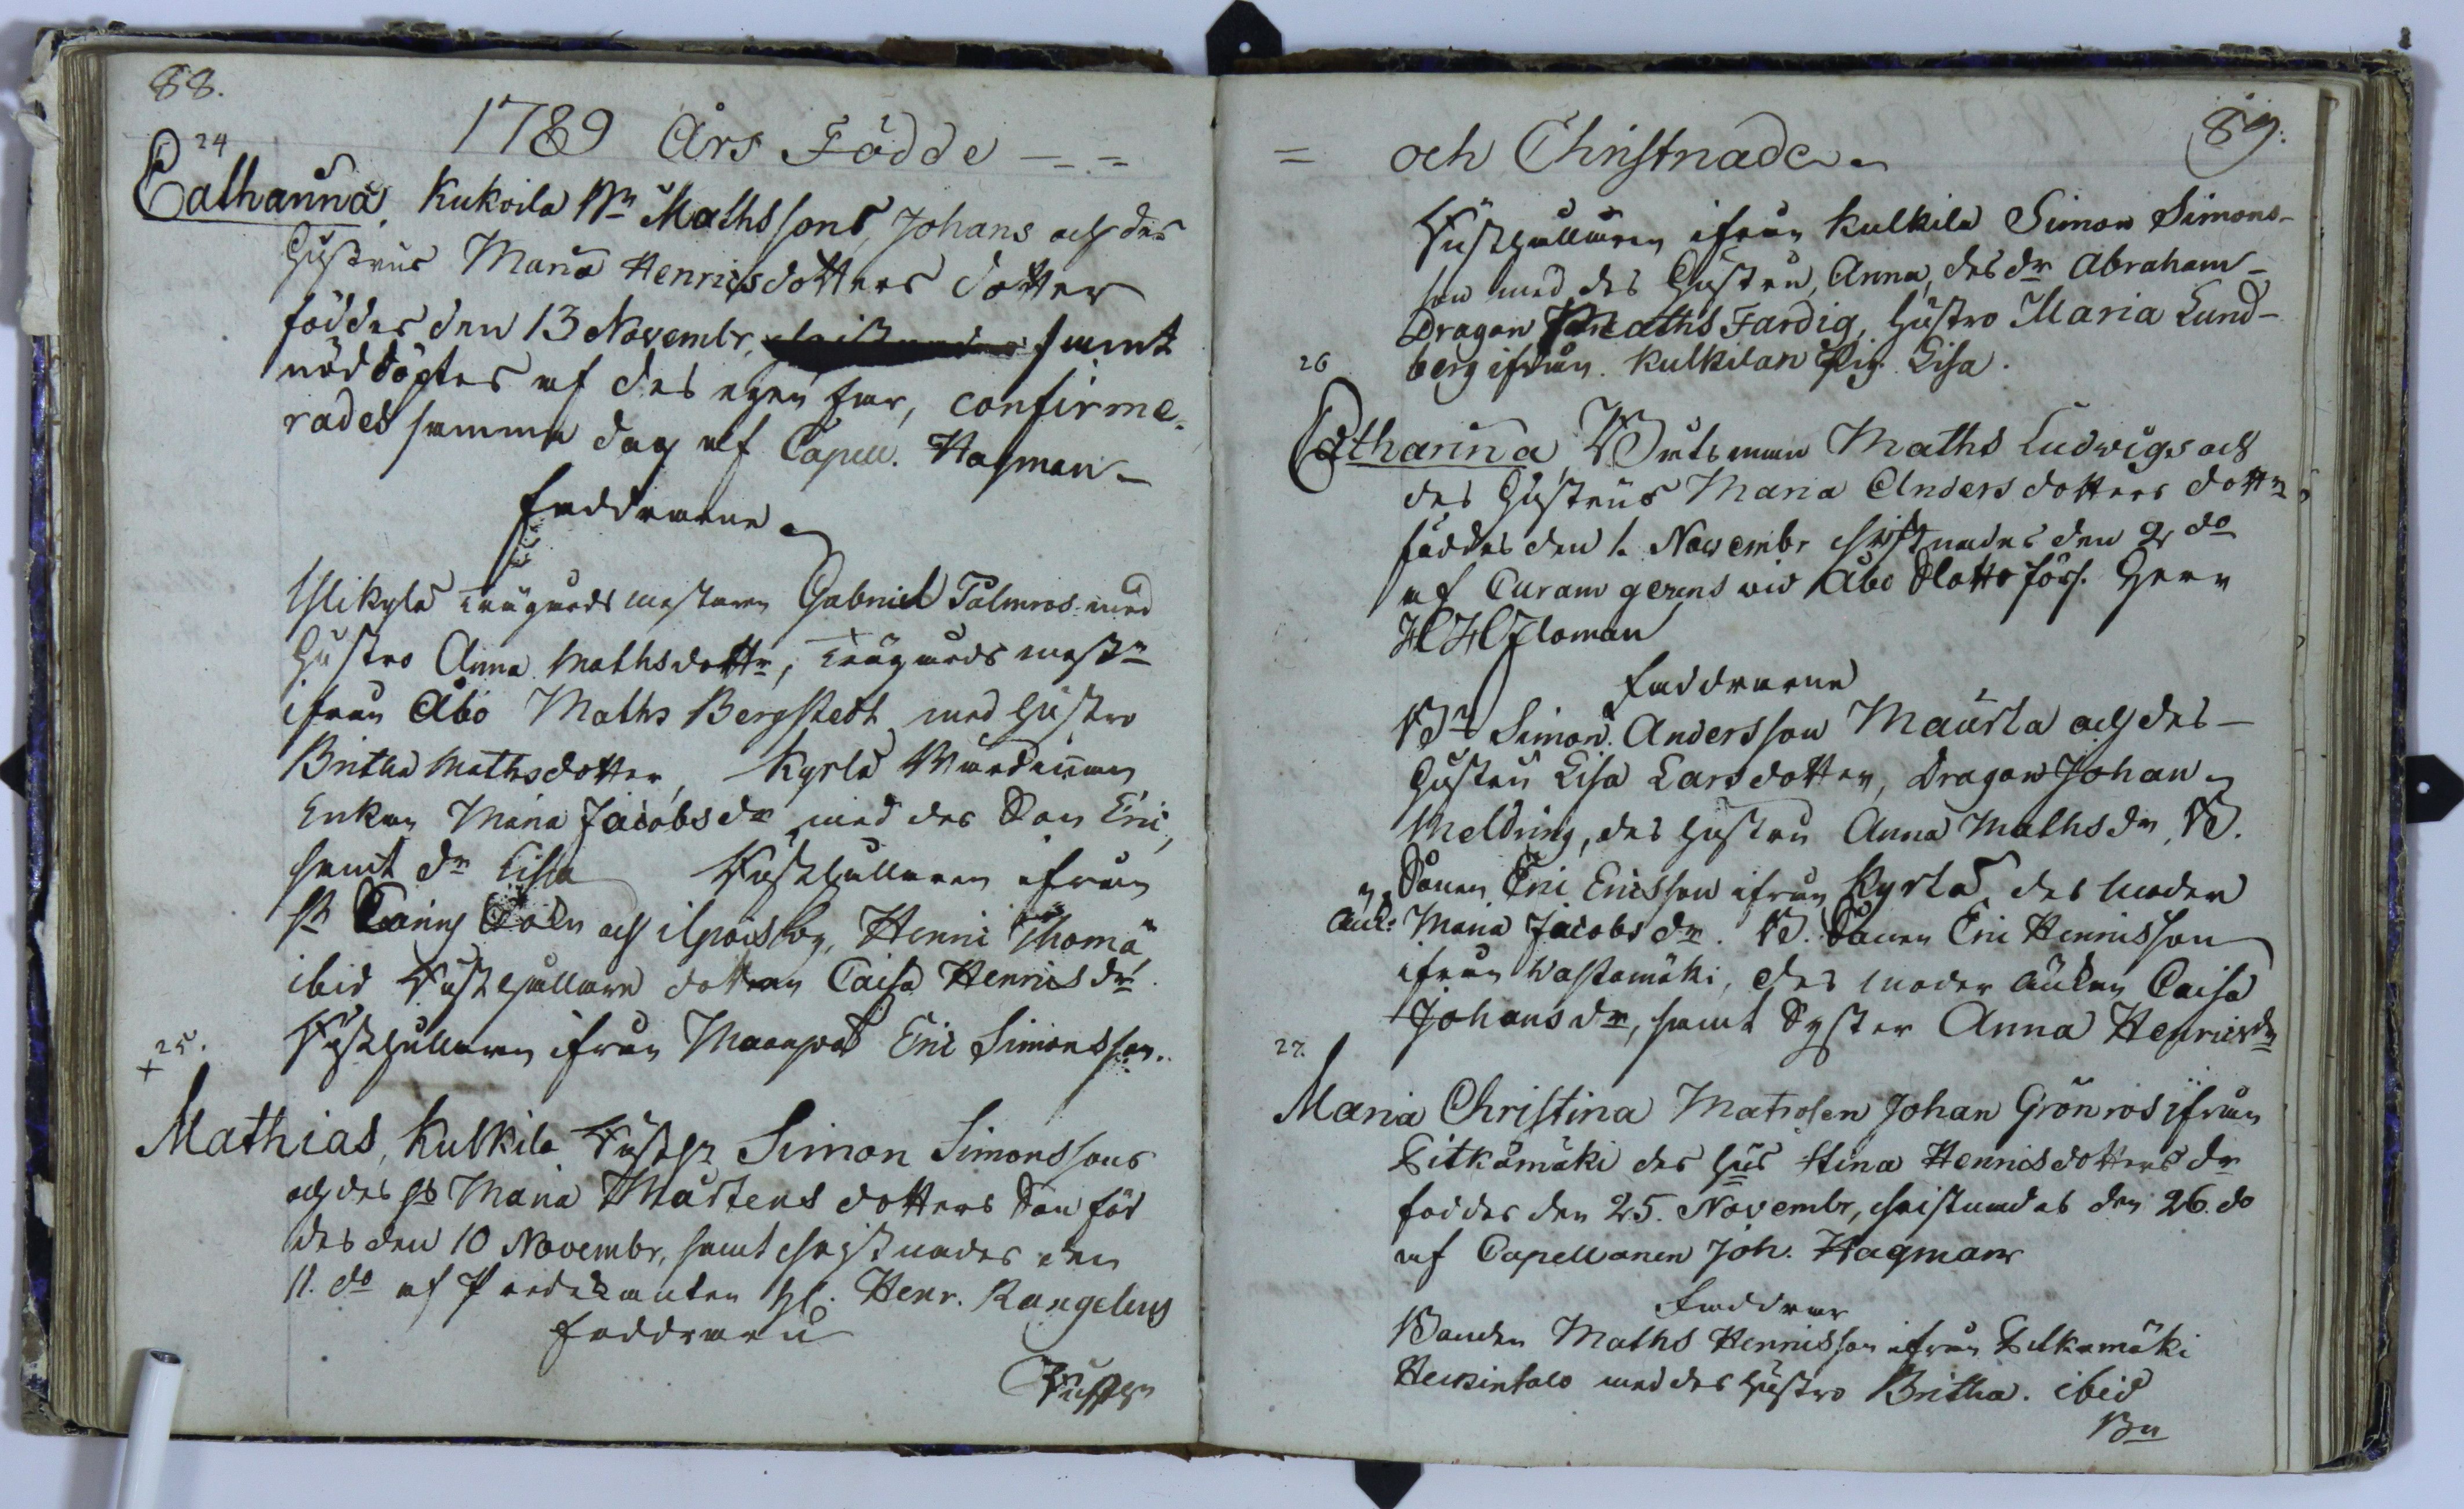 88.
1789 Års Födde
24
Catharina, Kukoila Mathssons, Johans och des
Hustrus Maria Henricsdotters dotter
föddes den 13 Novembr, samt
nöddöptes af des egen far, confirme-
rades samma dag af Capell. Hagman
Faddrarne
trägårdsmästaren Gabriel Palmros med
Hustro Anna Mathsdottr, trägårds mästr
ifrån Åbo Maths Bergstedt med Hustro
Britha Mathsdotter, Kyrla
Enkan Maria Jacobsdr med des Son Eric,
samt dr Lisa ifrån
och Henric Thomæ
ibid dottren Caisa Henricsdr
ifrån Eric Simonsson.
+ 25.
Mathias, Kulkila Simon Simonssons
och des Maria Mårtens dotters Son föd
des den 10 Novembr, samt christnades den
11. do af Predikanten Hl. Henr. Rangelius
Faddrarne
89.
och Christnade
ifrån Kulkila Simon Simons-
son med des Hustru, Anna, des dr Abraham
Dragon Maths Fardig, Hustro Maria Lund-
berg ifrån Kulkilan Pig. Lisa.
26
Catharina, Båtsman Maths Ludwigs och
des Hustrus Maria Andersdotters dottr,
föddes den 1. Novembr christnades den 2 do
af Curam gerens vid Åbo Slotts förs. Herr
Faddrarne
Simon Andersson Maurla och des
Hustru Lisa Larsdotter, Dragon Johan
Meldring, des Hustru Anna Mathsdr, B.
Sonen Eric Ericsson ifrån Kyrla des moder
Maria Jacobsdr. B. Sonen Eric Henricsson
ifrån Wastamäki, des moder änkan Caisa
Johansdr, samt Syster Anna Henricsdr
27.
Maria Christina Matrosen Johan Grönros ifrån
Pitkämäki des Hus Stina Henricsdotters dr
föddes den 25. Novembr, christnades den 26. do
af Capellanen Joh. Hagman
Faddrar
Bonden Maths Henricsson ifrån Pitkämäki
Heikintalo med des Hustro Britha. ibid
Bn